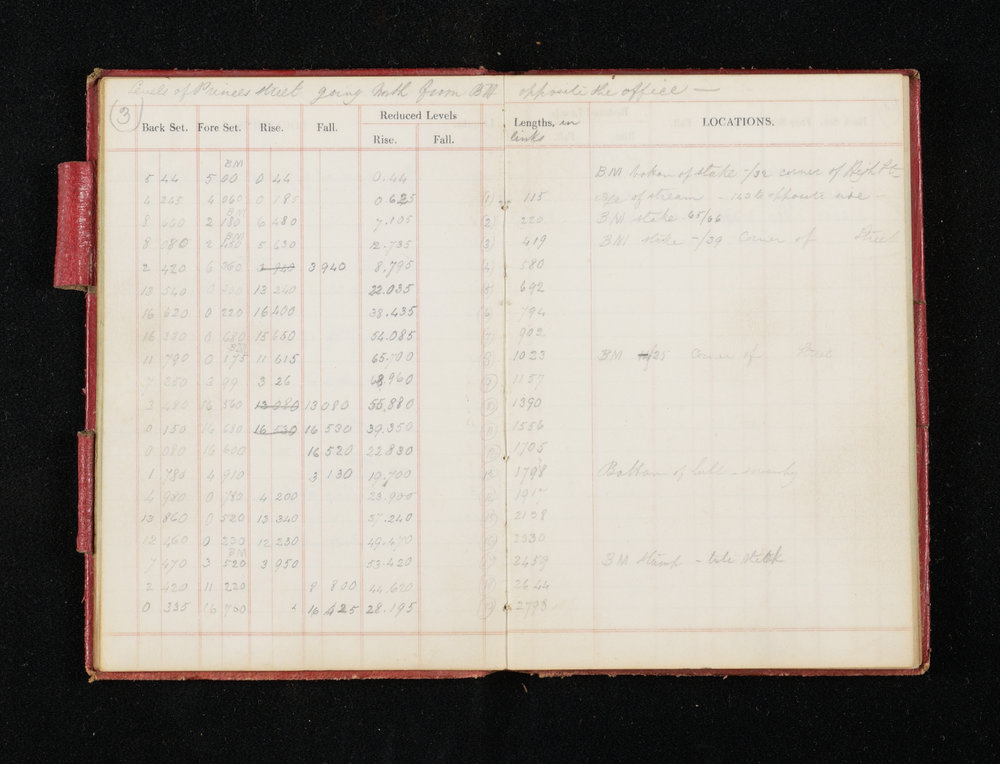 Levels of Princes street going North from BM opposite the office —
(3)
Back Set. Fore Set. Rise. Fall. Reduced Levels Rise. Fall. Lengths, in links LOCATIONS.
BM
5 44 5 00 0 44 0.44 BM
4 245 4 060 0 185 0.625 (1) 115 of stream - to opposite
BM
8 660 2 180 6 480 7.105 (2) 220 BM stake 65/66
BM
8 080 2 450 5 630 12.735 (3) 419 BM stake -/39 Corner of Street
2 420 6 360 3 940 3 940 8.795 (4) 580
13 540 0 300 13 240 22.035 (5) 692
16 620 0 220 16 400 38.435 (6) 794
16 330 0 680 15 650 54.085 (7) 902
BM
11 790 0 175 11 615 65.700 (8) 1023 BM /35 Corner of
7 250 3 99 3 26 68.960 (9) 1157
3 480 16 560 13 080 13 080 55,880 1390
0 150 16 680 16 530 16 530 39.350 1556
0 080 16 600 16 520 22.830 1705
1 780 4 910 3 130 19.700 1798 Bottom of
4 980 0 780 4 200 23.900 191
13 860 0 520 13 340 37.240 2138
12 460 0 230 12 230 49.470 2330
BM
7 470 3 520 3 950 53.420 2459 BM Stump -
2 420 11 220 8 800 44.620 2644
0 335 16 700 16 425 28.195 2798